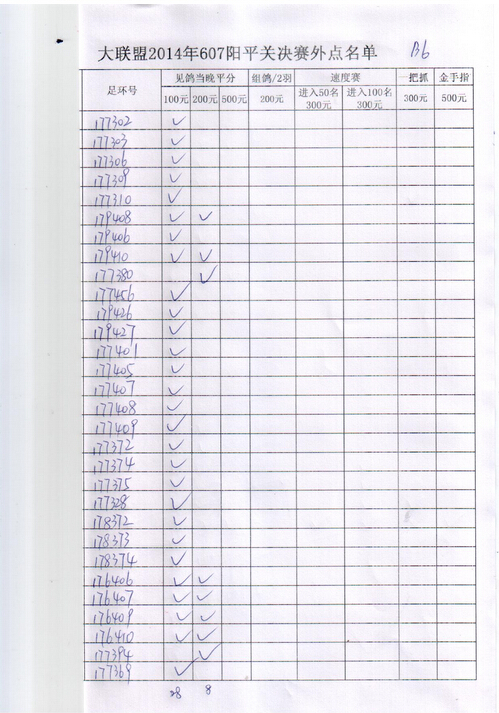 大联盟2014年607阳平关决赛外点名单 B6
足环号 见鸽当晚平分 组鸽/2羽 速度赛 一把抓 金手指
100元 200元 500元 200元 进入50名 300元 进入100名 300元 300元 500元
177302 ✓
177303 ✓
177306 ✓
177309 ✓
177310 ✓
179408 ✓ ✓
179406 ✓
179410 ✓ ✓
177380 ✓
177456 ✓
179426 ✓
179427 ✓
177401 ✓
177405 ✓
177407 ✓
177408 ✓
177409 ✓
177372 ✓
177374 ✓
177375 ✓
177328 ✓
178372 ✓
178373 ✓
178374 ✓
176406 ✓ ✓
176407 ✓ ✓
176409 ✓ ✓
176410 ✓ ✓
177394 ✓
177369 ✓
28 8